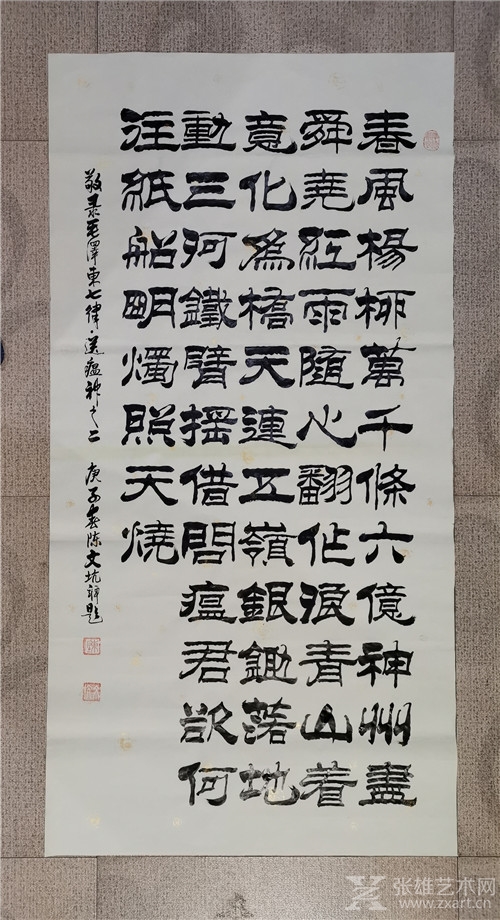 春風楊柳萬千條六億神州盡
舜堯紅雨隨心翻作浪青山着
意化為橋天連五嶺銀鋤落地
動三河鐵臂摇借問瘟君欲何
往紙船明燭照天燒
敬录毛澤東七律·送瘟神之二 庚子春陈文坑题
张雄艺术网
www.zxart.cn